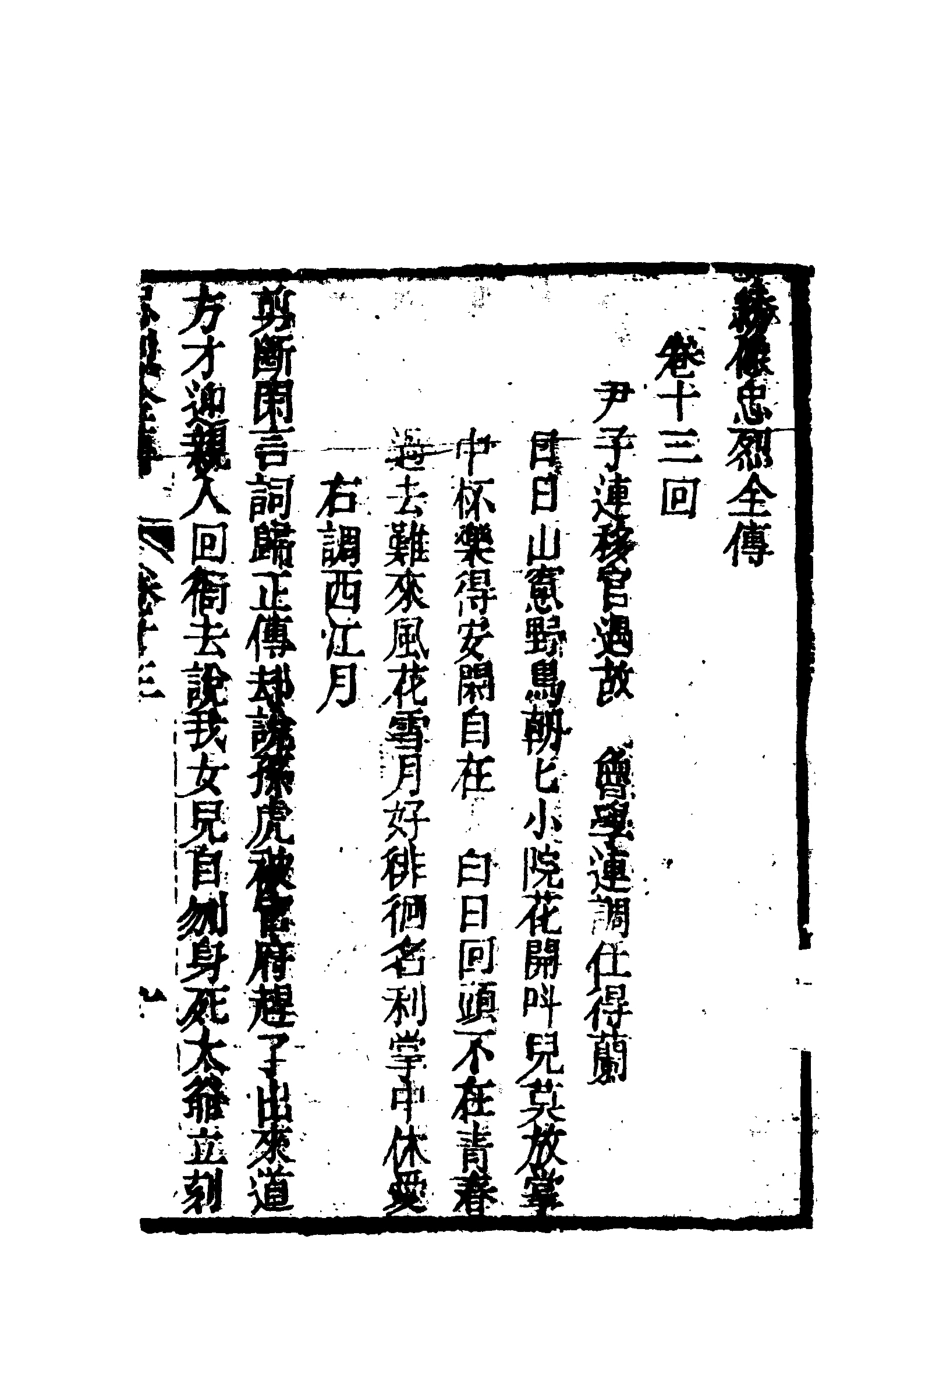 繡像忠烈全傳
卷十三回
尹子連移官過故 魯學連調任得蘭
日日山窓野鳥朝匕小院花開呌兒莫放掌
中杯樂得安閑自在 白日回頭不在青春
過去難來風花雪月好徘徊名利掌中休愛
右調西江月
剪斷閑言詞歸正傳却說孫虎被官府趕了出來道
方才迎親人回衙去說我女兒自刎身死太爺立刻
忠烈全傳 卷十三